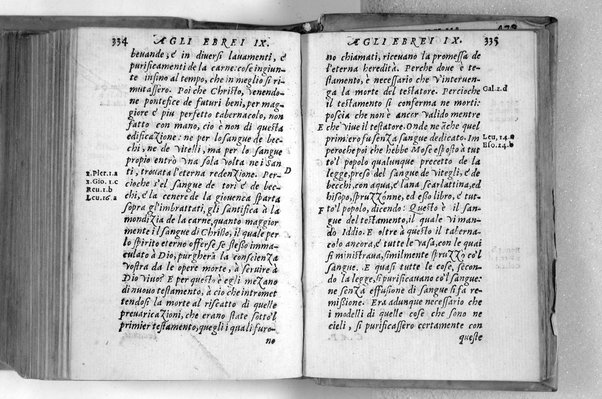 334 AGLI EBREI IX.
beuande, é in diuersi lauamenti, é
purificamenti de la carne: cose ingiun-
te insino al tempo, che in meglio si ri-
mutassero. Poi che Christo, venendo-
ne pontefice de futuri beni, per mag-
giore é piu perfetto tabernacolo, non
fatto con mano, cio è non di questa
edificazione: ne per lo sangue de bec-
chi, ne de vitelli, ma per lo sangue
proprio entrò vna sola volta ne i San
ti, trouata l'eterna redenzione. Per-
cioche s'el sangue de tori é de bec-
chi, é la cenere de la giouenca sparta
sopra gl'imbrattati, gli santifica à la
mondizia de la carne, quanto maggior
mente il sangue di Christo, il quale per
lo spirito eterno offerse se stesso imma-
culato à Dio, purgherà la conscienza
vostra da le opere morte, à seruire à
Dio viuo? E per questo è egli mezano
di nuouo testamento, à cio che intromet
tendosi la morte al riscatto di quelle
preuaricazioni, che erano state sotto'l
primier testamento, quegli i quali furo-
no
2. Pier. 1. a
1. Gio. 1. c
Leu. 16. a
D
AGLI EBREI IX. 335
no chiamati, riceuano la promessa de
l'eterna heredità. Perche doue è te-
stamento, è necessario che v'interuen-
ga la morte del testatore. Percioche
il testamento si conferma ne morti:
poscia che non è ancor valido mentre
E che viue il testatore. Onde ne anche quel
primier fu senza sangue dedicato. Im
peroche poi che hebbe Mose esposto à tut
to'l popolo qualunque precetto de la
legge, preso del sangue de vitegli, é de
becchi, con aqua, é lana scarlattina, ed
hisopo, spruzzonne, ed esso libro, é tut-
to'l popolo, dicendo: Questo è il san-
F gue del testamento, il quale vi man-
do Iddio. E oltre à questo il taberna-
colo ancora, é tutte le vasa, con le quai
si ministraua, similmente spruzzò co'l
sangue. E quasi tutte le cose, secon-
do la legge, si purificauano co'l sangue:
ne senza effusione di sangue si fa re-
missione. Era adunque necessario che
i modelli di quelle cose che sono ne
cieli, si purificassero certamente con
queste
Gal. 2. d
Leu. 14. a
Eso. 24. b